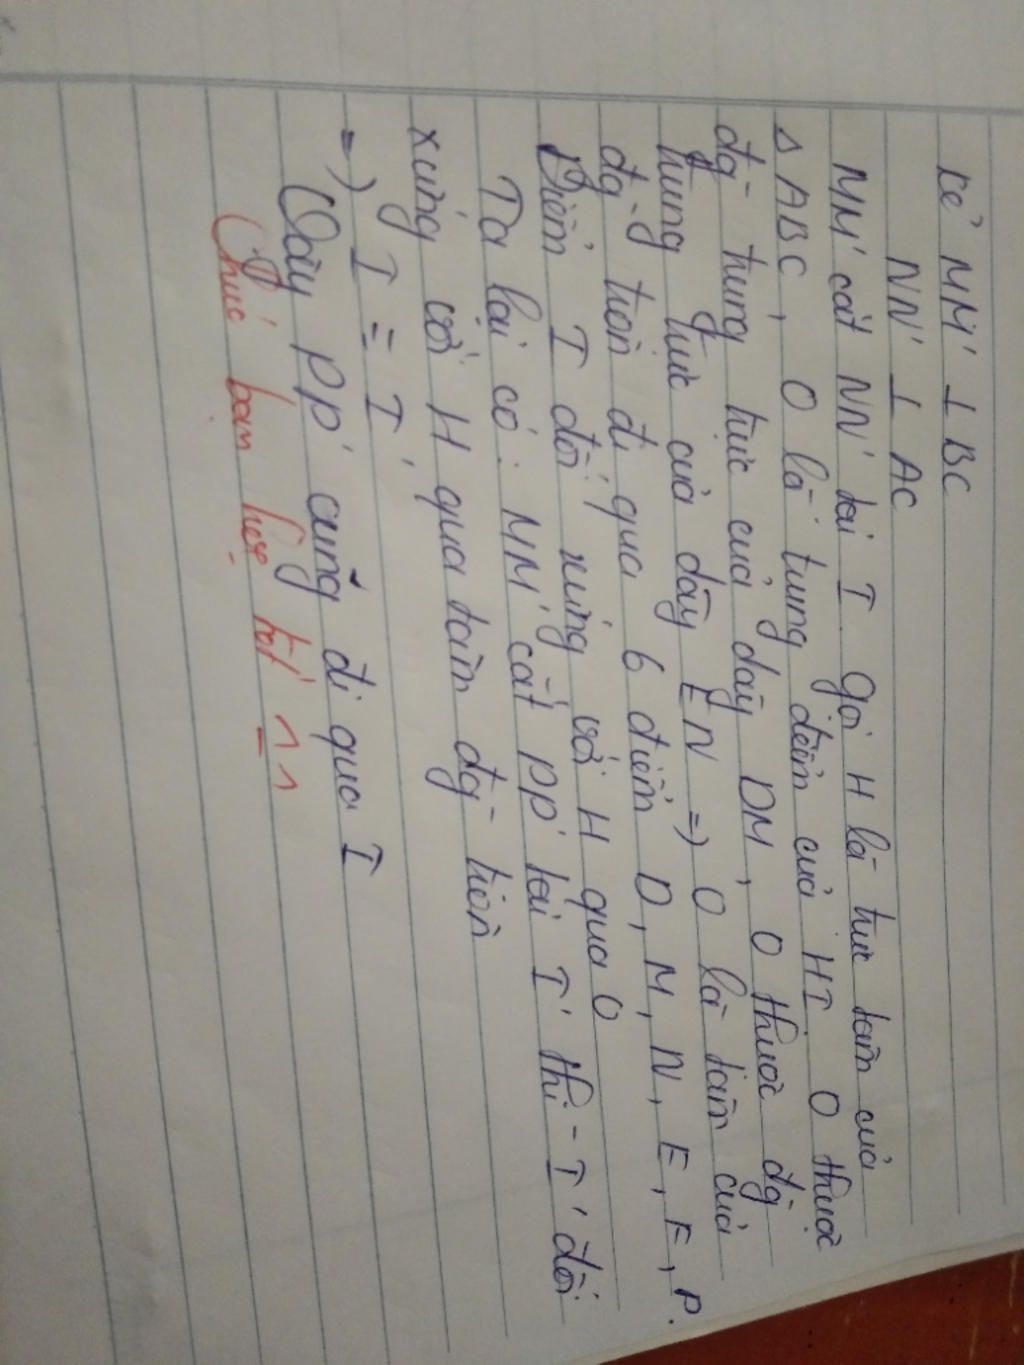 Kẻ MM' ⊥ BC
NN' ⊥ AC
MM' cắt NN' tại I gọi H là trực tâm của
Δ ABC, O là trung điểm của HI. O thuộc
đg- trung trực của dây DM, O thuộc đg
trung trực của dây EN =) O là tâm của
đg- tròn đi qua 6 điểm D, M, N, E, F, P.
Điểm I đối xứng với H qua O
Ta lại có: MM' cắt PP' tại I' thì - I' đối
xứng với H qua tâm đg- tròn
=) I = I'
Vậy PP' cũng đi qua I
Chúc bạn học tốt ^_^